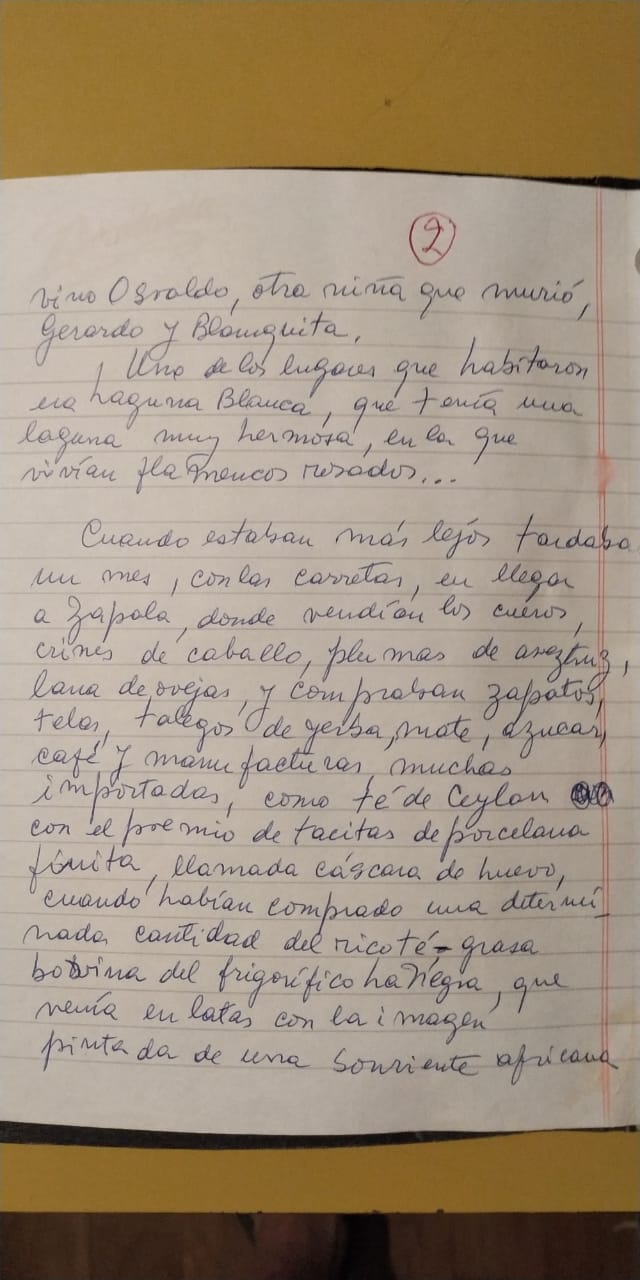 2
vino Osvaldo, otra niña que murió,
Gerardo y Blanquita.
Uno de los lugares que habitaron
era Laguna Blanca, que tenía una
laguna muy hermosa, en la que
vivían flamencos rosados...
Cuando estaban más lejos tardaba
un mes, con las carretas, en llegar
a Zapala, donde vendían los cueros,
crines de caballo, plumas de aveztruz,
lana de ovejas, y compraban zapatos,
telas, talegos de yerba, mate, azucar,
café y manufacturas, muchas
importadas, como té de Ceylan
con el premio de tacitas de porcelana
finita, llamada cáscara de huevo,
cuando habían comprado una determi-
nada cantidad del rico té,- grasa
bovina del frigorífico La Negra, que
venía en latas con la imagen
pintada de una sonriente africana